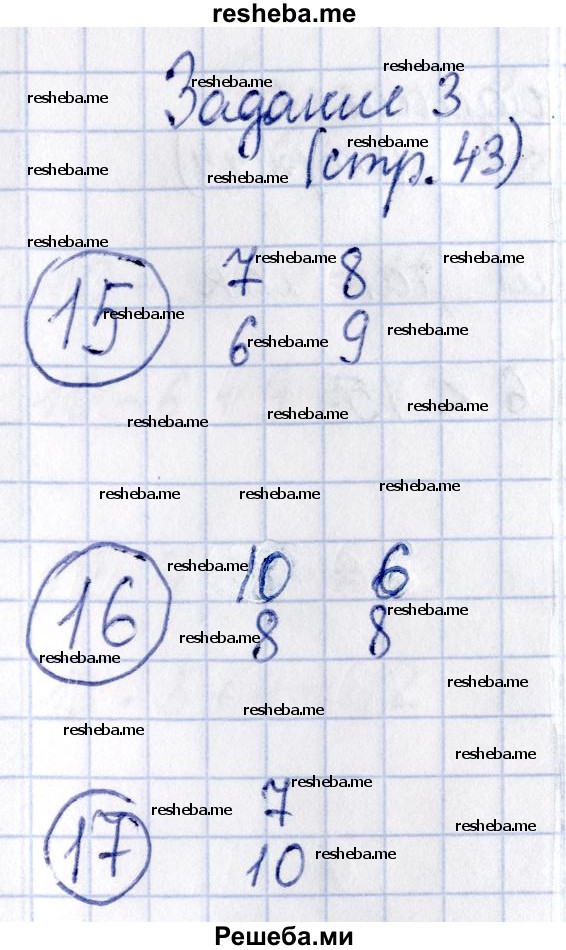 resheba.me
resheba.me
resheba.me
resheba.me
Задание 3
resheba.me
resheba.me
resheba.me
(стр. 43)
resheba.me
resheba.me
resheba.me
15
7 8
resheba.me
resheba.me
resheba.me
6 9
resheba.me
resheba.me
resheba.me
resheba.me
resheba.me
resheba.me
resheba.me
16
resheba.me
10 6
resheba.me
resheba.me
8 8
resheba.me
resheba.me
resheba.me
resheba.me
resheba.me
17
resheba.me
7
resheba.me
resheba.me
10
resheba.me
Решеба.ми